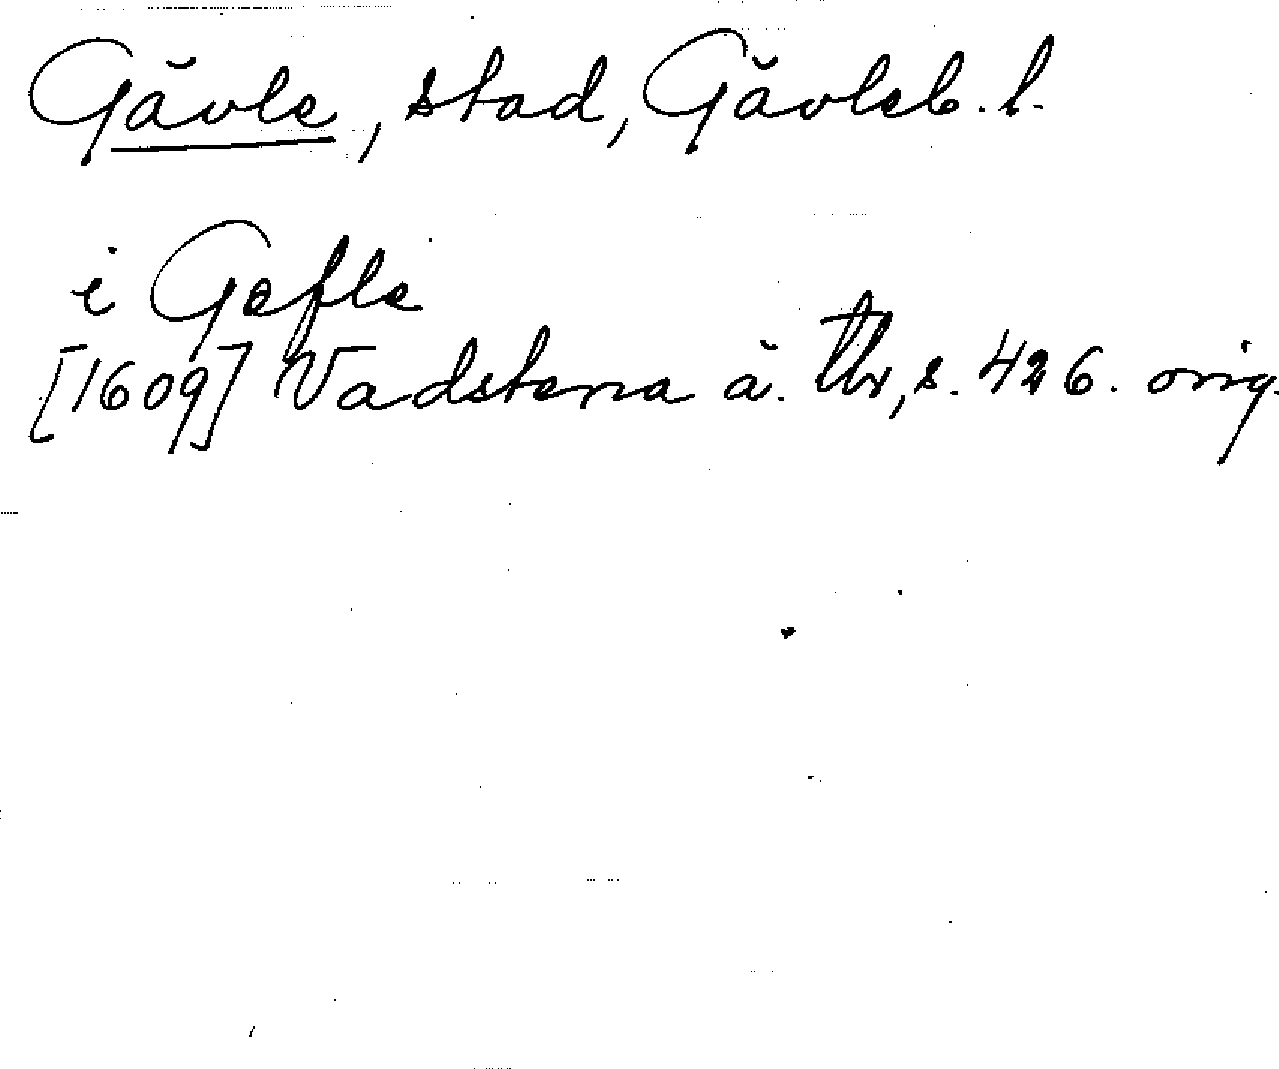 Gävle, stad, Gävleb. l.
i Gefle
[1609] Vadstena ä. tb, s. 426. orig.